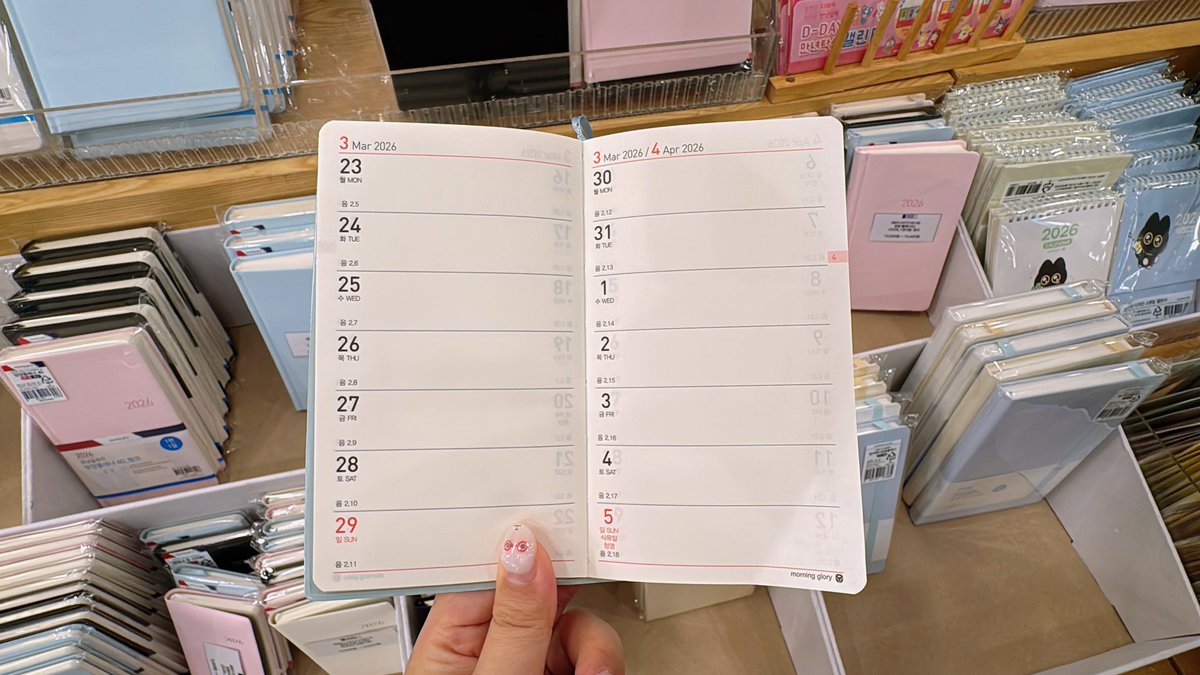 D-DAY
3 Mar 2026
23
월 MON
음 2.5
24
화 TUE
음 2.6
25
수 WED
음 2.7
26
목 THU
음 2.8
27
금 FRI
음 2.9
28
토 SAT
음 2.10
29
일 SUN
음 2.11
3 Mar 2026 / 4 Apr 2026
30
월 MON
음 2.12
31
화 TUE
음 2.13
4
1
수 WED
음 2.14
2
목 THU
음 2.15
3
금 FRI
음 2.16
4
토 SAT
음 2.17
5
일 SUN
식목일
청명
음 2.18
morning glory
2026
2026
2026
2026